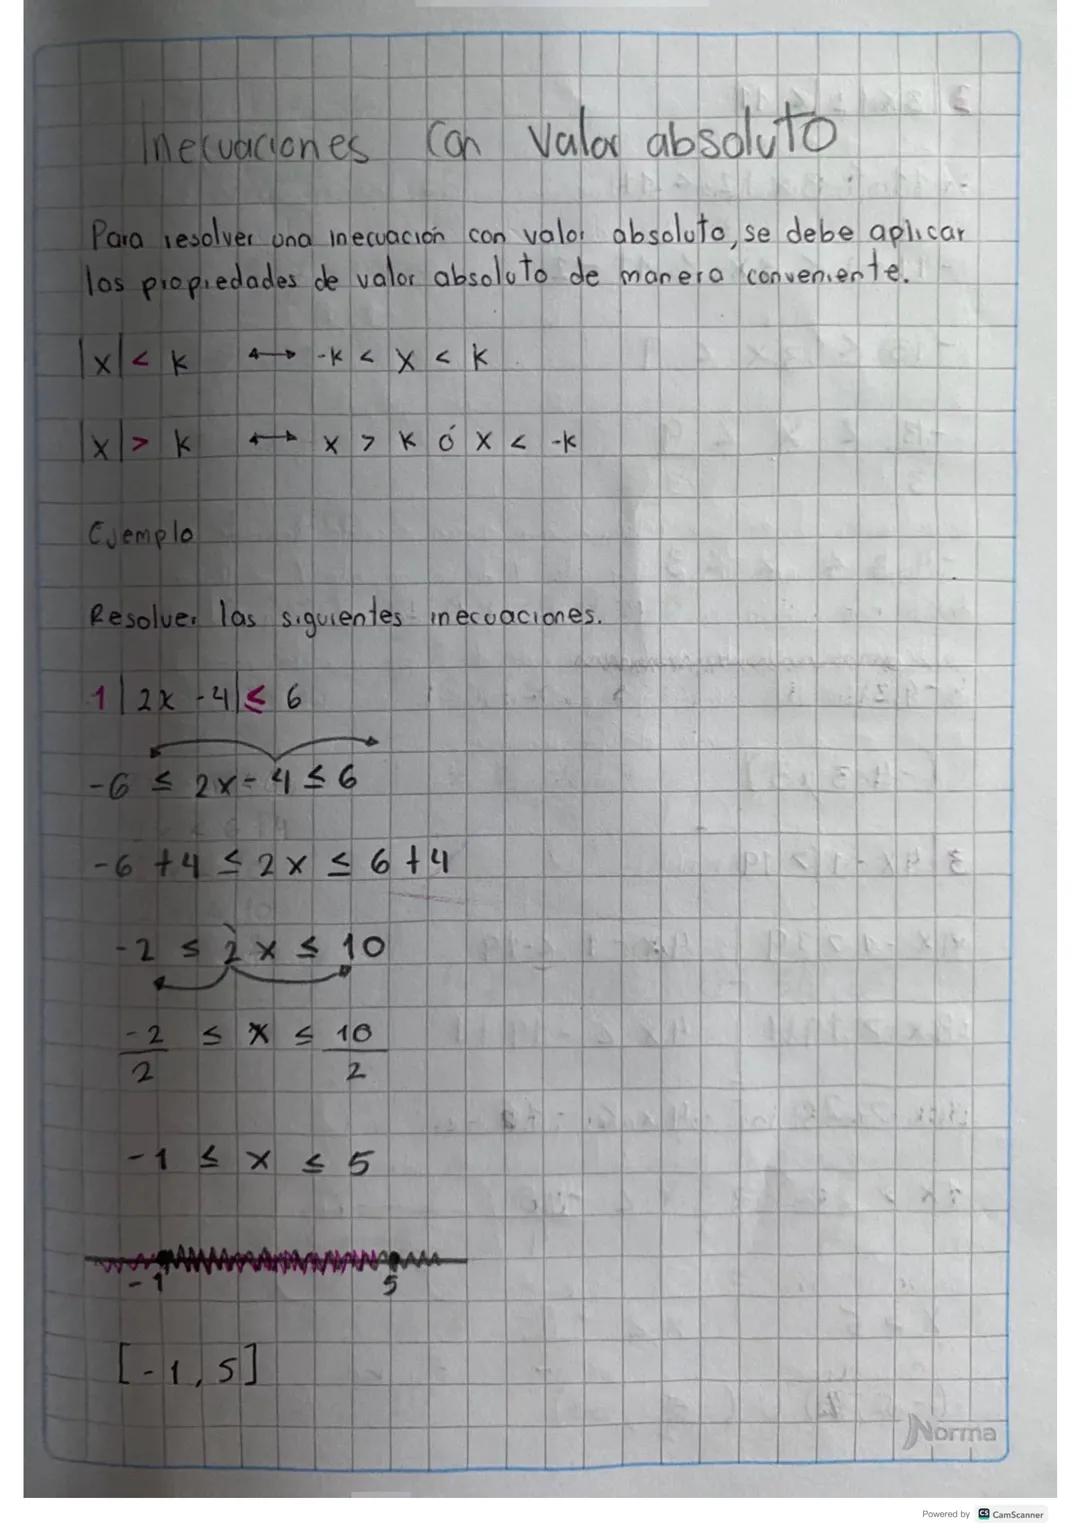 Inecuaciones con valor absoluto
Para resolver una inecuación con valor absoluto, se debe aplicar
las propiedades de valor absoluto de manera conveniente.
|x| < k ↔ -k < x < k
|x| > k ↔ x > k ó x < -k
Ejemplo
Resolver las siguientes inecuaciones.
1 |2x - 4| ≤ 6
-6 ≤ 2x - 4 ≤ 6
-6 + 4 ≤ 2x ≤ 6 + 4
-2 ≤ 2x ≤ 10
-2/2 ≤ x ≤ 10/2
-1 ≤ x ≤ 5
-1 5
[-1, 5]
Norma
Powered by CS CamScanner